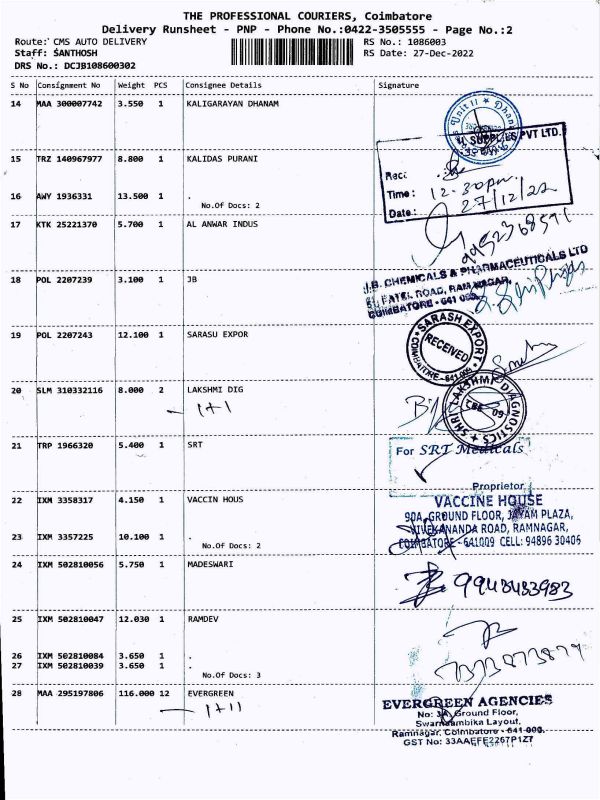 THE PROFESSIONAL COURIERS, Coimbatore
Delivery Runsheet - PNP - Phone No.:0422-3505555 - Page No.:2
Route: CMS AUTO DELIVERY RS No.: 1086003
Staff: SANTHOSH RS Date: 27-Dec-2022
DRS No.: DCJB108600302
S No Consignment No Weight PCS Consignee Details Signature
14 MAA 300007742 3.550 1 KALIGARAYAN DHANAM
Unit II
SUPPLIES PVT LTD.
15 TRZ 140967977 8.800 1 KALIDAS PURANI
Reci
16 AWY 1936331 13.500 1 .
No.Of Docs: 2
Time: 12.30pm
Date: 27/12/22
17 KTK 25221370 5.700 1 AL ANWAR INDUS
9952368591
18 POL 2207239 3.100 1 JB
J.B. CHEMICALS & PHARMACEUTICALS LTD
PATEL ROAD, RAM NAGAR,
COIMBATORE - 641 009.
19 POL 2207243 12.100 1 SARASU EXPOR
SARASH EXPORT
RECEIVED
COIMBATORE - 641 009
20 SLM 310332116 8.000 2 LAKSHMI DIG
1+1
SHRI LAKSHMI DIAGNOSTICS
CBE 09
21 TRP 1966320 5.400 1 SRT
For SRT Medicals
Proprietor
22 IXM 3358317 4.150 1 VACCIN HOUS
VACCINE HOUSE
90A, GROUND FLOOR, JAYAM PLAZA,
VIVEKANANDA ROAD, RAMNAGAR,
COIMBATORE - 641009 CELL: 94896 30406
23 IXM 3357225 10.100 1 .
No.Of Docs: 2
24 IXM 502810056 5.750 1 MADESWARI
9948433983
25 IXM 502810047 12.030 1 RAMDEV
26 IXM 502810084 3.650 1 .
27 IXM 502810039 3.650 1 .
No.Of Docs: 3
28 MAA 295197806 116.000 12 EVERGREEN
1+11
EVERGREEN AGENCIES
No: 3A, Ground Floor,
Swarnambika Layout,
Ramnagar, Coimbatore - 641 009.
GST No: 33AAEFE2267P1Z7